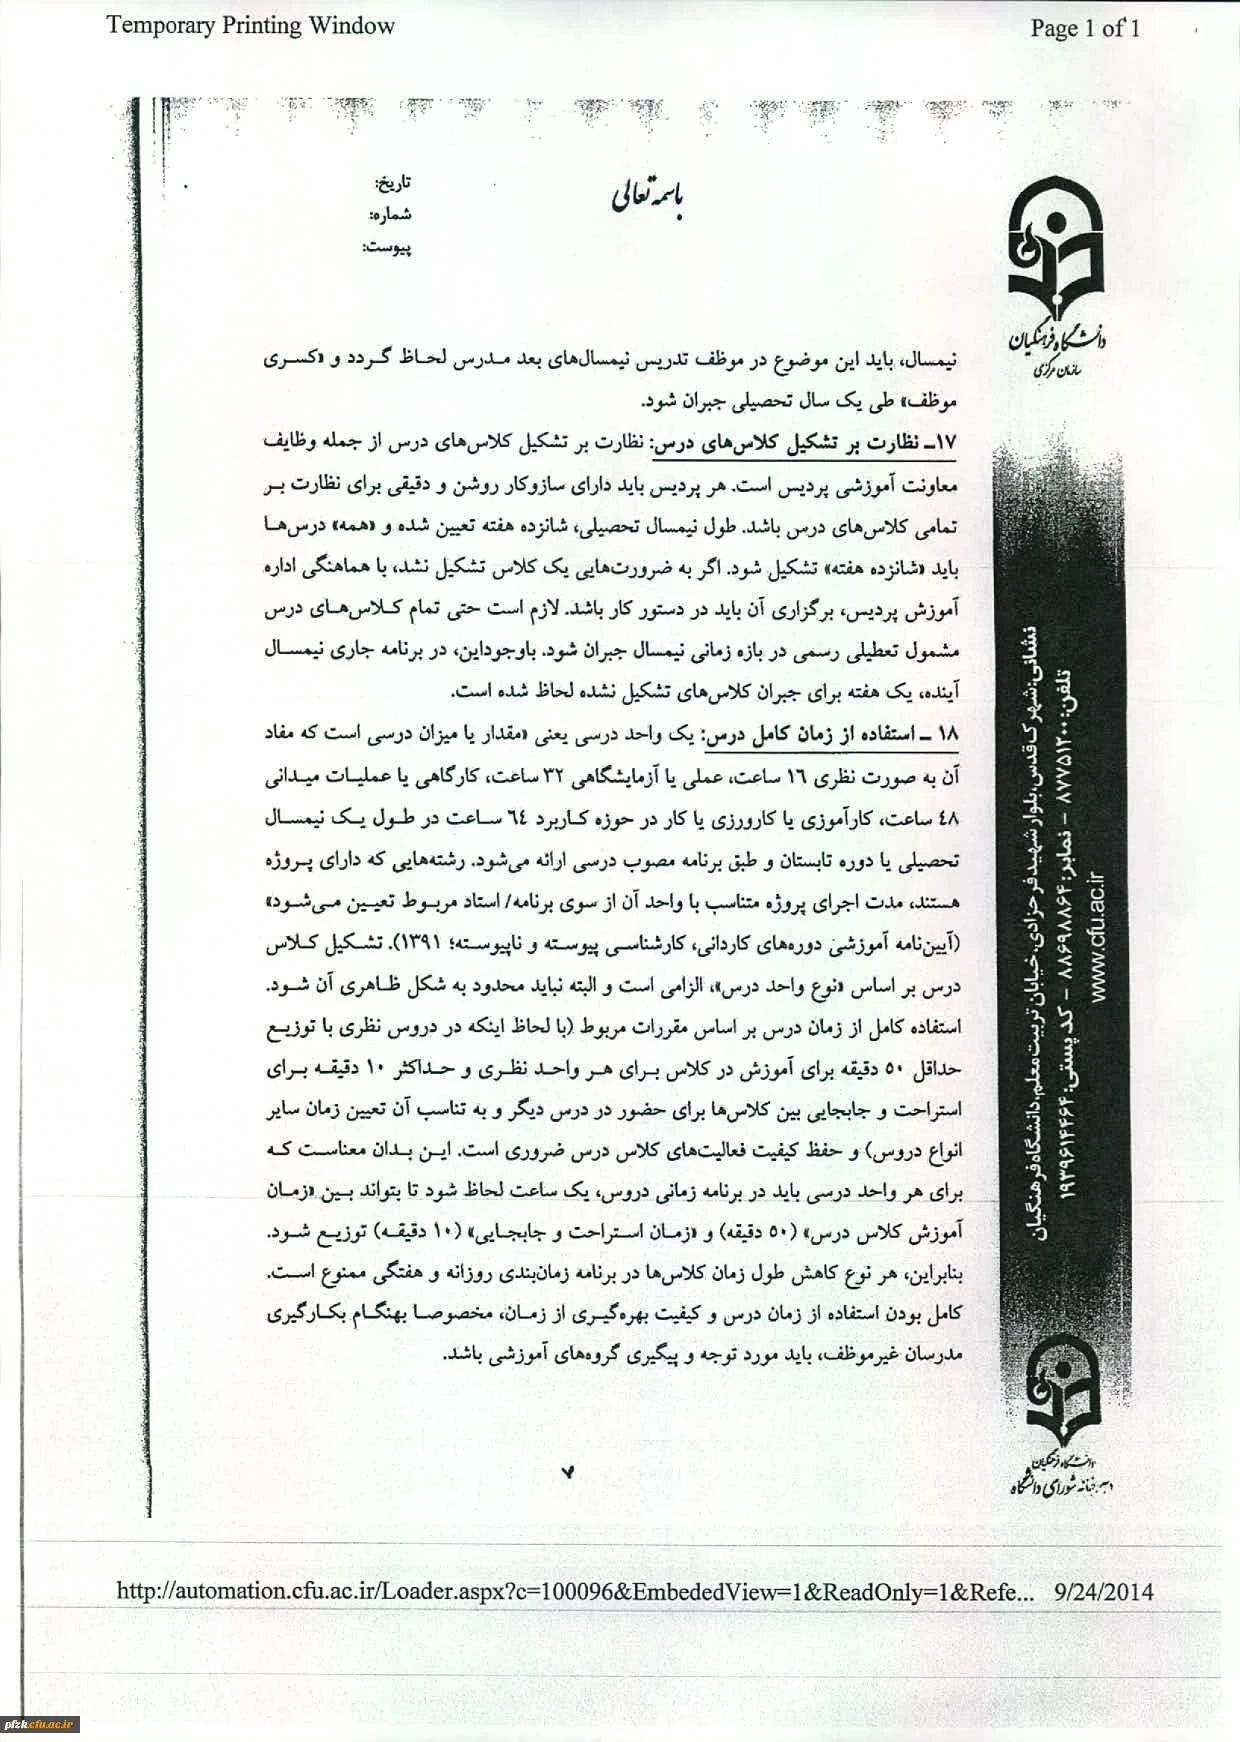 Temporary Printing Window
Page 1 of 1
باسمه تعالی
تاریخ:
شماره:
پیوست:
دانشگاه فرهنگیان
سازمان مرکزی
نیمسال، باید این موضوع در موظف تدریس نیمسال‌های بعد مدرس لحاظ گردد و «کسری
موظف» طی یک سال تحصیلی جبران شود.
۱۷ـ نظارت بر تشکیل کلاس‌های درس: نظارت بر تشکیل کلاس‌های درس از جمله وظایف
معاونت آموزشی پردیس است. هر پردیس باید دارای سازوکار روشن و دقیقی برای نظارت بر
تمامی کلاس‌های درس باشد. طول نیمسال تحصیلی، شانزده هفته تعیین شده و «همه» درس‌ها
باید «شانزده هفته» تشکیل شود. اگر به ضرورت‌هایی یک کلاس تشکیل نشد، با هماهنگی اداره
آموزش پردیس، برگزاری آن باید در دستور کار باشد. لازم است حتی تمام کلاس‌های درس
مشمول تعطیلی رسمی در بازه زمانی نیمسال جبران شود. باوجوداین، در برنامه جاری نیمسال
آینده، یک هفته برای جبران کلاس‌های تشکیل نشده لحاظ شده است.
۱۸ ـ استفاده از زمان کامل درس: یک واحد درسی یعنی «مقدار یا میزان درسی است که مفاد
آن به صورت نظری ۱۶ ساعت، عملی یا آزمایشگاهی ۳۲ ساعت، کارگاهی یا عملیات میدانی
۴۸ ساعت، کارآموزی یا کارورزی یا کار در حوزه کاربرد ۶۴ ساعت در طول یک نیمسال
تحصیلی یا دوره تابستان و طبق برنامه مصوب درسی ارائه می‌شود. رشته‌هایی که دارای پروژه
هستند، مدت اجرای پروژه متناسب با واحد آن از سوی برنامه/ استاد مربوط تعیین می‌شود»
(آیین‌نامه آموزشی دوره‌های کاردانی، کارشناسی پیوسته و ناپیوسته؛ ۱۳۹۱). تشکیل کلاس
درس بر اساس «نوع واحد درس»، الزامی است و البته نباید محدود به شکل ظاهری آن شود.
استفاده کامل از زمان درس بر اساس مقررات مربوط (با لحاظ اینکه در دروس نظری با توزیع
حداقل ۵۰ دقیقه برای آموزش در کلاس برای هر واحد نظری و حداکثر ۱۰ دقیقه برای
استراحت و جابجایی بین کلاس‌ها برای حضور در درس دیگر و به تناسب آن تعیین زمان سایر
انواع دروس) و حفظ کیفیت فعالیت‌های کلاس درس ضروری است. این بدان معناست که
برای هر واحد درسی باید در برنامه زمانی دروس، یک ساعت لحاظ شود تا بتواند بین «زمان
آموزش کلاس درس» (۵۰ دقیقه) و «زمان استراحت و جابجایی» (۱۰ دقیقه) توزیع شود.
بنابراین، هر نوع کاهش طول زمان کلاس‌ها در برنامه زمان‌بندی روزانه و هفتگی ممنوع است.
کامل بودن استفاده از زمان درس و کیفیت بهره‌گیری از زمان، مخصوصا بهنگام بکارگیری
مدرسان غیرموظف، باید مورد توجه و پیگیری گروه‌های آموزشی باشد.
۷
نشانی: شهرک قدس، بلوار شهید فرحزادی، خیابان تربیت معلم، دانشگاه فرهنگیان
تلفن: ۸۷۷۵۱۲۰۰ - نمابر: ۸۸۶۹۸۸۶۴ - کد پستی: ۱۹۳۹۶۱۴۴۶۴
www.cfu.ac.ir
دانشگاه فرهنگیان
دبیرخانه شورای دانشگاه
http://automation.cfu.ac.ir/Loader.aspx?c=100096&EmbededView=1&ReadOnly=1&Refe... 9/24/2014
pfzk.cfu.ac.ir